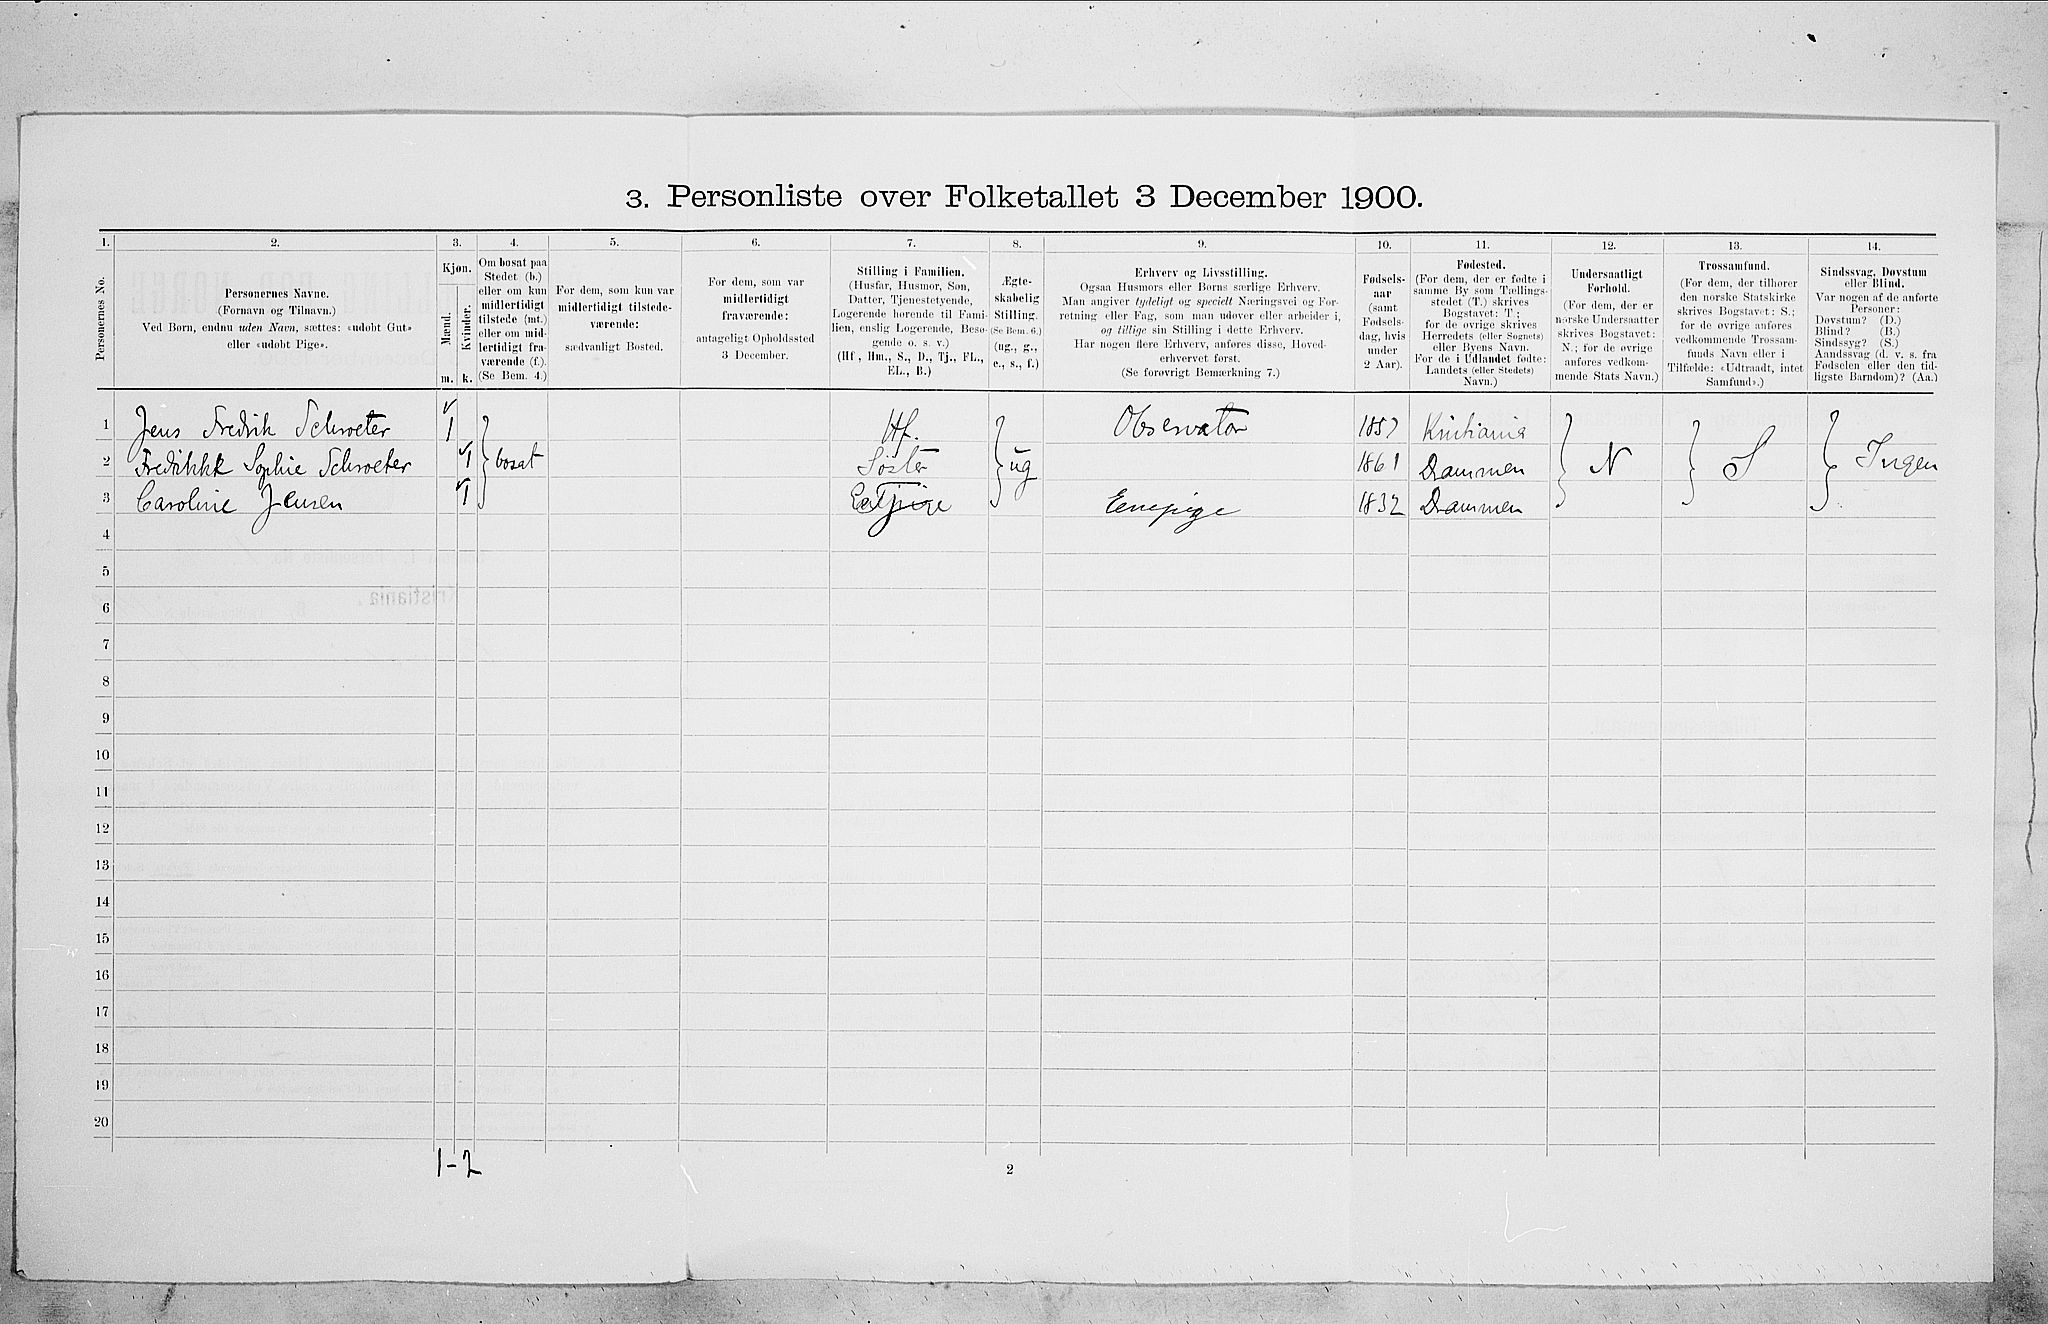 3. Personliste over Folketallet 3 December 1900.
1. 2. 3. 4. 5. 6. 7. 8. 9. 10. 11. 12. 13. 14.
Personernes No.
Personernes Navne.
(Fornavn og Tilnavn.)
Ved Børn, endnu uden Navn, sættes: «udøbt Gut»
eller «udøbt Pige».
Kjøn.
Mænd.
Kvinder.
m. k.
Om bosat paa
Stedet (b.)
eller om kun
midlertidigt
tilstede (mt.)
eller om mid-
lertidigt fra-
værende (f.).
(Se Bem. 4.)
For dem, som kun var
midlertidigt tilstede-
værende:
sædvanligt Bosted.
For dem, som var
midlertidigt
fraværende:
antageligt Opholdssted
3 December.
Stilling i Familien.
(Husfar, Husmor, Søn,
Datter, Tjenestetyende,
Logerende hørende til Fami-
lien, enslig Logerende, Besø-
gende o. s. v.)
(Hf, Hm., S., D., Tj., FL.,
EL., B.)
Ægte-
skabelig
Stilling.
(Se Bem. 6.)
(ug., g.,
e., s., f.)
Erhverv og Livsstilling.
Ogsaa Husmors eller Børns særlige Erhverv.
Man angiver tydeligt og specielt Næringsvei og For-
retning eller Fag, som man udøver eller arbeider i,
og tillige sin Stilling i dette Erhverv.
Har nogen flere Erhverv, anføres disse, Hoved-
erhvervet først.
(Se forøvrigt Bemærkning 7.)
Fødsels-
aar
(samt
Fødsels-
dag, hvis
under
2 Aar).
Fødested.
(For dem, der er fødte i
samme By som Tællings-
stedet (T.) skrives
Bogstavet: T;
for de øvrige skrives
Herredets (eller Sognets)
eller Byens Navn.
For de i Udlandet fødte:
Landets (eller Stedets)
Navn.)
Undersaatligt
Forhold.
(For dem, der er
norske Undersaatter
skrives Bogstavet:
N.; for de øvrige
anføres vedkom-
mende Stats Navn.)
Trossamfund.
(For dem, der tilhører
den norske Statskirke
skrives Bogstavet: S.;
for de øvrige anføres
vedkommende Trossam-
funds Navn eller i
Tilfælde: «Udtraadt, intet
Samfund».)
Sindssvag, Døvstum
eller Blind.
Var nogen af de anførte
Personer:
Døvstum? (D.)
Blind? (B.)
Sindssyg? (S.)
Aandssvag (d. v. s. fra
Fødselen eller den tid-
ligste Barndom)? (Aa.)
1 Jens Fredrik Schroeter 1 Hf. Observator 1857 Kristiania
2 Fredrikke Sophie Schroeter 1 bosat Søster ug 1861 Drammen N S Ingen
3 Caroline Jensen 1 Enepige 1832 Drammen
4
5
6
7
8
9
10
11
12
13
14
15
16
17
18
19
20
1-2
2